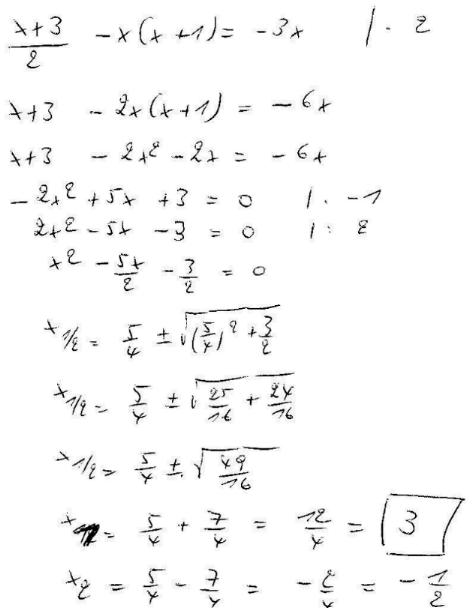 (x+3)/2 - x(x+1) = -3x | · 2
x+3 - 2x(x+1) = -6x
x+3 - 2x² - 2x = -6x
-2x² + 5x + 3 = 0 | · -1
2x² - 5x - 3 = 0 | : 2
x² - 5x/2 - 3/2 = 0
x1/2 = 5/4 ± √((5/4)² + 3/2)
x1/2 = 5/4 ± √(25/16 + 24/16)
x1/2 = 5/4 ± √(49/16)
x1 = 5/4 + 7/4 = 12/4 = 3
x2 = 5/4 - 7/4 = -2/4 = -1/2